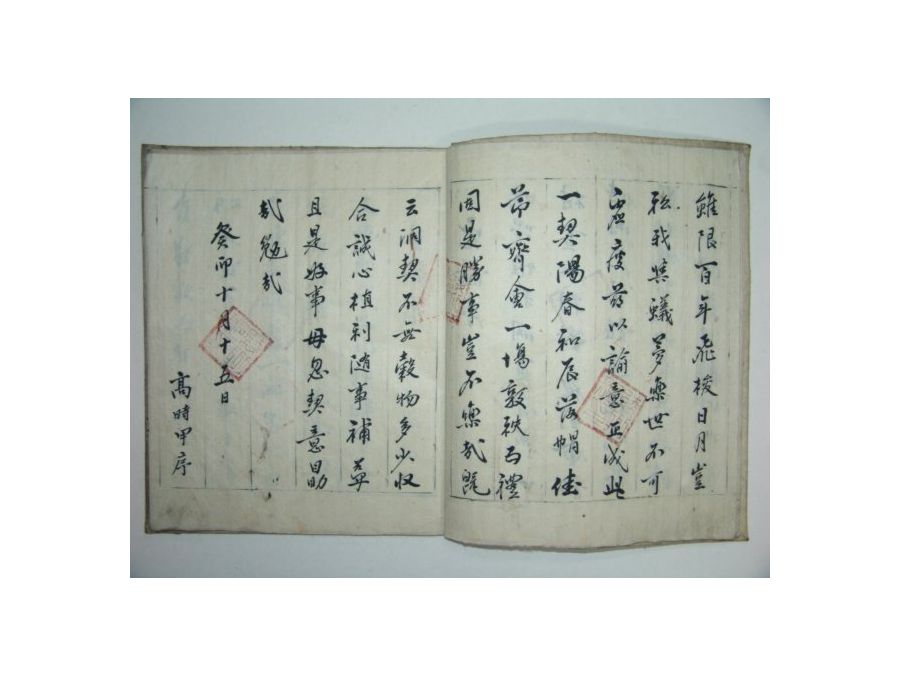 雖限百年飛梭日月豈
我蟻夢樂世不可
虛度茲以諭意正成此
一契陽春和辰落帽佳
節齊會一場敦秩而禮
固是勝事豈不樂哉旣
云洞契不無穀物多少収
合誠心植利随事補益
且是好事毋忽契意自助
哉勉哉
癸卯十月十五日
高時甲序